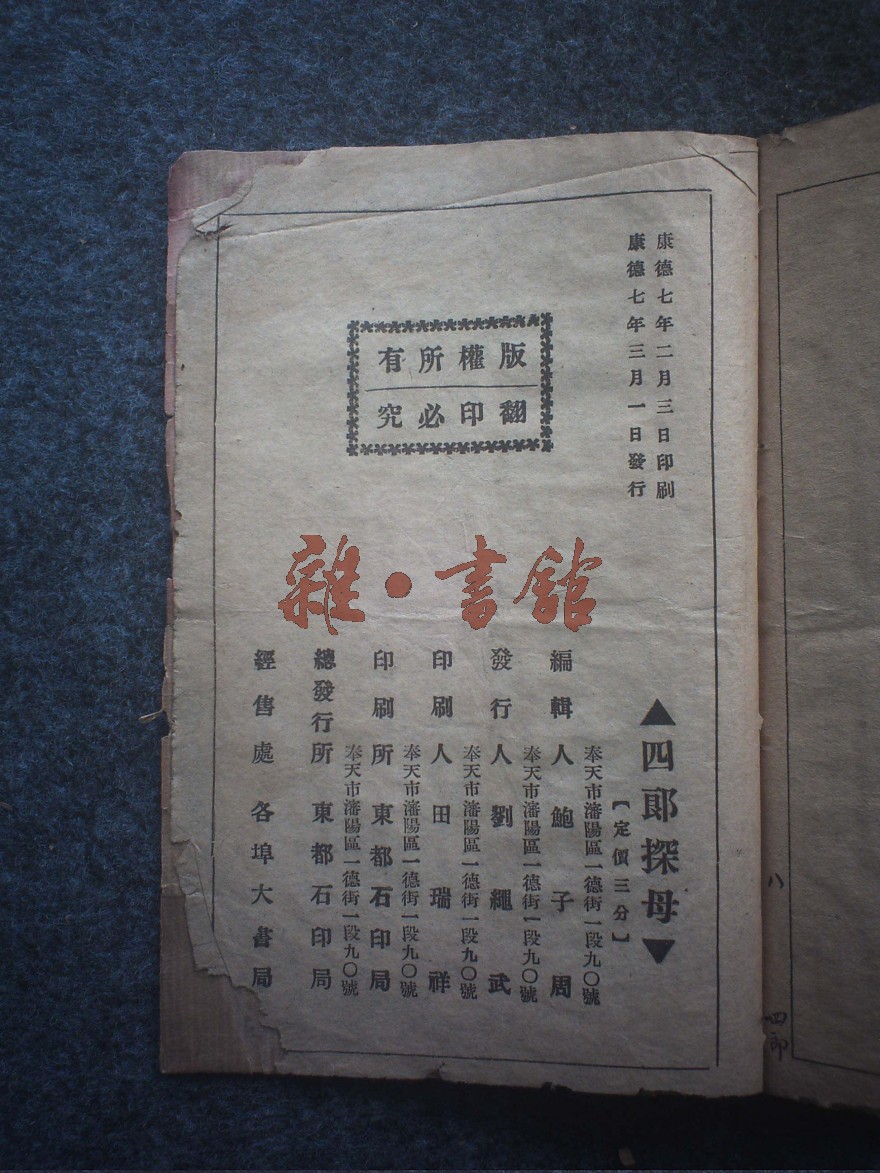 康德七年二月三日印刷
康德七年三月一日發行
版權所有
翻印必究
雜·書館
▲四郎探母▼
【定價三分】
奉天市瀋陽區一德街一段九〇號
編輯人鮑子周
奉天市瀋陽區一德街一段九〇號
發行人劉繩武
奉天市瀋陽區一德街一段九〇號
印刷人田瑞祥
奉天市瀋陽區一德街一段九〇號
印刷所東都石印局
奉天市瀋陽區一德街一段九〇號
總發行所東都石印局
經售處各埠大書局
八
四郎